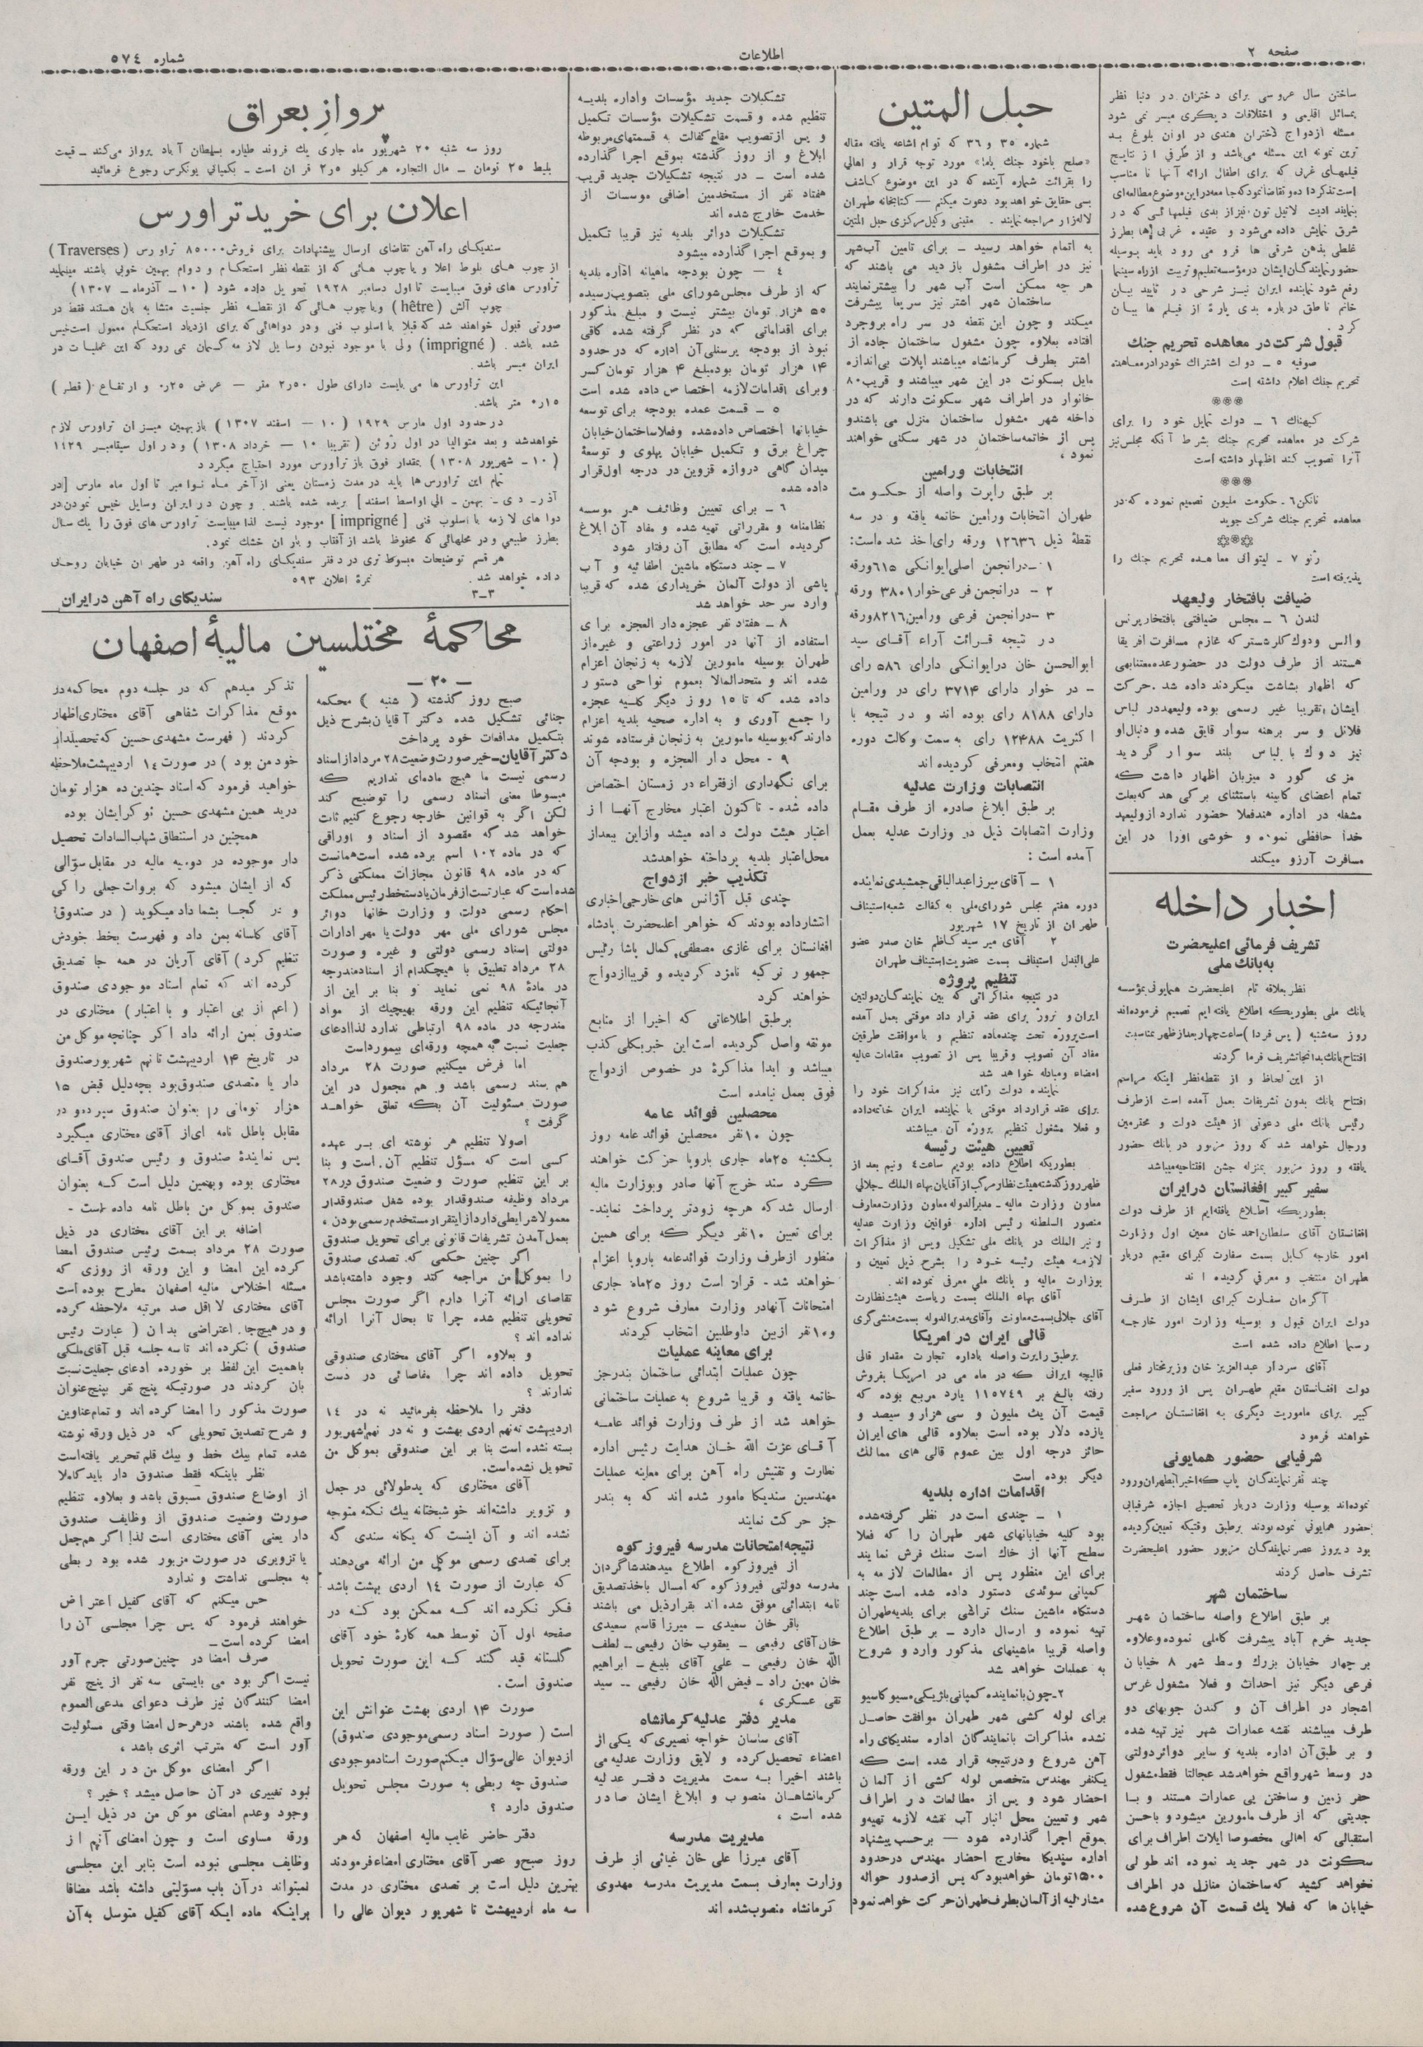 صفحه ۲
اطلاعات
شماره ۵۷٤
ساختن سال عروسی برای دختران در دنیا نظر
بمسائل اقلیمی و اختلافات دیگری میسر نمی شود
مسئله ازدواج دختران هندی در اوان بلوغ بد
ترین نمونه این مسئله میباشد و از طرفی از نتایج
فیلمهای غربی که برای اطفال ارائه آنها نا مناسب
است تذکر داده و تقاضا نمود که جامعه در این موضوع مطالعه‌ای
بنمایند لیدی لاتیل تون، نیز از بدی فیلمهائی که در
شرق نمایش داده می‌شود و عقیده غربی هارا بطرز
غلطی بذهن شرقی ها فرو می رود باید بوسیله
حضور نمایندگان ایشان در مؤسسه تعلیم و تربیت از راه سینما
رفع شود نماینده ایران نیز شرحی در تایید بیان
خانم ناطق درباره بدی پارهٔ از فیلم ها بیان
کرد.
قبول شرکت در معاهده تحریم جنك
صوفیه ٥ – دولت اشتراك خود را در معاهده
تحریم جنك اعلام داشته است
***
کپنهاك ٦ – دولت تمایل خود را برای
شرکت در معاهده تحریم جنك بشرط آنکه مجلس نیز
آنرا تصویب کند اظهار داشته است
***
نانکن ٦ - حکومت ملیون تصمیم نموده که در
معاهده تحریم جنك شرکت جوید
***
رنو ۷ – لیتوانی معاهده تحریم جنك را
پذیرفته است
ضیافت بافتخار ولیعهد
لندن ٦ – مجلس ضیافتی بافتخار پرنس
والس ودوك کلرشستر که عازم مسافرت افریقا
هستند از طرف دولت در حضور عده معتنابهی
که اظهار بشاشت میکردند داده شد. حرکت
ایشان تقریبا غیر رسمی بوده ولیعهد در لباس
فلانل و سر برهنه سوار قایق شده و دنبال او
نیز دوك با لباس بلند سوار گردید
تمام اعضای کابینه باستثنای برکن هد که بعلت
مشغله در اداره هند فعلا حضور ندارد از ولیعهد
خدا حافظی نموده و خوشی اورا در این
مسافرت آرزو میکند
اخبار داخله
تشریف فرمائی اعلیحضرت
به بانك ملی
نظر بعلاقه تام اعلیحضرت همایونی بمؤسسه
بانك ملی بطوریکه اطلاع یافته ایم تصمیم فرموده‌اند
روز سه‌شنبه (پس فردا) ساعت چهار بعد از ظهر بمناسبت
افتتاح بانك بدانجا تشریف فرما گردند
از این لحاظ و از نقطه نظر اینکه مراسم
افتتاح بانك بدون تشریفات بعمل آمده است از طرف
رئیس بانك ملی دعوتی از هیئت دولت و محترمین
ورجال خواهد شد که روز مزبور در بانك حضور
یافته و روز مزبور بمنزله جشن افتتاحیه میباشد
سفیر کبیر افغانستان در ایران
بطوریکه اطلاع یافته‌ایم از طرف دولت
افغانستان آقای سلطان احمد خان معین اول وزارت
امور خارجه کابل بسمت سفارت کبرای مقیم دربار
طهران منتخب و معرفی گردیده اند
آگرمان سفارت کبرای ایشان از طرف
دولت ایران قبول و بوسیله وزارت امور خارجه
رسما اطلاع داده شده است
آقای سردار عبدالعزیز خان وزیر مختار فعلی
دولت افغانستان مقیم طهران پس از ورود سفیر
کبیر برای ماموریت دیگری به افغانستان مراجعت
خواهند فرمود
شرفیابی حضور همایونی
چند نفر نمایندگان پاپ که اخیرا بطهران ورود
نموده‌اند بوسیله وزارت دربار تحصیل اجازه شرفیابی
حضور همایونی نموده بودند برطبق وقتیکه تعیین گردیده
بود دیروز عصر نمایندگان مزبور حضور اعلیحضرت
تشرف حاصل کردند
ساختمان شهر
بر طبق اطلاع واصله ساختمان شهر
جدید خرم آباد پیشرفت کاملی نموده و علاوه
بر چهار خیابان بزرك وسط شهر ۸ خیابان
فرعی دیگر نیز احداث و فعلا مشغول غرس
اشجار در اطراف آن و کندن جوبهای دو
طرف میباشند نقشه عمارات شهر نیز تهیه شده
و بر طبق آن اداره بلدیه و سایر دوائر دولتی
در وسط شهر واقع خواهد شد عجالتا فقط مشغول
حفر زمین و ساختن پی عمارات هستند و با
جدیتی که از طرف مامورین میشود و با حسن
استقبالی که اهالی مخصوصا ایلات اطراف برای
سکونت در شهر جدید نموده اند طولی
نخواهد کشید که ساختمان منازلی در اطراف
خیابان ها که فعلا یك قسمت آن شروع شده
حبل المتین
شماره ۳۵ و ۳٦ که توام اشاعه یافته مقاله
«صلح یا خود جنك یله!» مورد توجه قرار و اهالی
را بقرائت شماره آینده که در این موضوع کاشف
بسی حقایق خواهد بود دعوت میکنم — کتابخانه طهران
لاله‌زار مراجعه نمایند. متینی وکیل مرکزی حبل المتین
به اتمام خواهد رسید – برای تامین آب شهر
نیز در اطراف مشغول بازدید می باشند که
هر چه ممکن است آب شهر را بیشتر نمایند
ساختمان شهر اشتر نیز سریعا پیشرفت
میکند و چون این نقطه در سر راه بروجرد
افتاده بعلاوه چون مشغول ساختمان جاده از
اشتر بطرف کرمانشاه میباشند ایلات بی‌اندازه
مایل بسکونت در این شهر میباشند و قریب ۸۰
خانوار در اطراف شهر سکونت دارند که در
داخله شهر مشغول ساختمان منزل می باشند و
پس از خاتمه ساختمان در شهر سکنی خواهند
نمود،
انتخابات ورامین
بر طبق راپرت واصله از حکومت
طهران انتخابات ورامین خاتمه یافته و در سه
نقطهٔ ذیل ۱۲٦۳٦ ورقه رای اخذ شده است:
۱ –در انجمن اصلی ایوانکی ٦۱۵ ورقه
۲ – در انجمن فرعی خوار ۳۸۰۱ ورقه
۳ –در انجمن فرعی ورامین ۸۲۱٦ ورقه
در نتیجه قرائت آراء آقای سید
ابوالحسن خان در ایوانکی دارای ۵۸٦ رای
– در خوار دارای ۳۷۱۴ رای در ورامین
دارای ۸۱۸۸ رای بوده اند و در نتیجه با
اکثریت ۱۲۴۸۸ رای به سمت وکالت دوره
هفتم انتخاب و معرفی گردیده اند
انتصابات وزارت عدلیه
بر طبق ابلاغ صادره از طرف مقام
وزارت انتصابات ذیل در وزارت عدلیه بعمل
آمده است :
۱ – آقای میرزا عبدالباقی جمشیدی نماینده
دوره هفتم مجلس شورای ملی به کفالت شعبه استیناف
طهران از تاریخ ۱۷ شهریور
۲ آقای میر سید کاظم خان صدر عضو
علی‌البدل استیناف بسمت عضویت استیناف طهران
تنظیم پروژه
در نتیجه مذاکراتی که بین نمایندگان دولتین
ایران و نروژ برای عقد قرارداد موقتی بعمل آمده
است پروژه تحت چند ماده تنظیم و با موافقت طرفین
مفاد آن تصویب و قریبا پس از تصویب مقامات عالیه
امضاء و مبادله خواهد شد
نماینده دولت ژاپن نیز مذاکرات خود را
برای عقد قرارداد موقتی با نماینده ایران خاتمه داده
و فعلا مشغول تنظیم پروژه آن میباشند
تعیین هیئت رئیسه
بطوریکه اطلاع داده بودیم ساعت ٤ ونیم بعد از
ظهر روز گذشته هیئت نظار مرکب از آقایان بهاء الملك – جلالی
معاون وزارت مالیه – مدیرالدوله معاون وزارت معارف
منصور السلطنه رئیس اداره قوانین وزارت عدلیه
و نیر الملك در بانك ملی تشکیل و پس از مذاکرات
لازمه هیئت رئیسه خود را بشرح ذیل تعیین و
بوزارت مالیه و بانك ملی معرفی نموده اند.
آقای بهاء الملك بسمت ریاست هیئت نظارت
آقای جلالی بسمت معاونت و آقای مدیرالدوله بسمت منشی گری
قالی ایران در امریکا
برطبق راپرت واصله باداره تجارت مقدار قالی
قالیچه ایرانی که در ماه می در امریکا بفروش
رفته بالغ بر ۱۱۰۷۴۹ یارد مربع بوده که
قیمت آن یك ملیون و سی هزار و سیصد و
یازده دلار بوده است بعلاوه قالی های ایران
حائز درجه اول بین عموم قالی های ممالك
دیگر بوده است
اقدامات اداره بلدیه
۱ – چندی است در نظر گرفته شده
بود کلیه خیابانهای شهر طهران را که فعلا
سطح آنها از خاك است سنك فرش نمایند
برای این منظور پس از مطالعات لازمه به
کمپانی سوئدی دستور داده شده است چند
دستگاه ماشین سنك تراشی برای بلدیه طهران
تهیه نموده و ارسال دارد – بر طبق اطلاع
واصله قریبا ماشینهای مذکور وارد و شروع
به عملیات خواهد شد
۲ – چون با نماینده کمپانی بلژیکی مسیو کاسیو
برای لوله کشی شهر طهران موافقت حاصل
نشده مذاکرات با نمایندگان اداره سندیکای راه
آهن شروع و در نتیجه قرار شده است که
یکنفر مهندس متخصص لوله کشی از آلمان
احضار شود و پس از مطالعات در اطراف
شهر و تعیین محل انبار آب نقشه لازمه تهیه و
بموقع اجرا گذارده شود — برحسب پیشنهاد
اداره سندیکا مخارج احضار مهندس در حدود
۱۵۰۰ تومان خواهد بود که پس از صدور حواله
مشارالیه از آلمان بطرف طهران حرکت خواهد نمود
تشکیلات جدید مؤسسات و اداره بلدیه
تنظیم شده و قسمت تشکیلات مؤسسات تکمیل
و پس از تصویب مقام کفالت به قسمتهای مربوطه
ابلاغ و از روز گذشته بموقع اجرا گذارده
شده است – در نتیجه تشکیلات جدید قریب
هفتاد نفر از مستخدمین اضافی موسسات از
خدمت خارج شده اند
تشکیلات دوائر بلدیه نیز قریبا تکمیل
و بموقع اجرا گذارده میشود
٤ – چون بودجه ماهیانه اداره بلدیه
که از طرف مجلس شورای ملی بتصویب رسیده
۵۵ هزار تومان بیشتر نیست و مبلغ مذکور
برای اقداماتی که در نظر گرفته شده کافی
نبود از بودجه پرسنلی آن اداره که در حدود
۱۴ هزار تومان بود مبلغ ۴ هزار تومان کسر
وبرای اقدامات لازمه اختصاص داده شده است
۵ – قسمت عمده بودجه برای توسعه
خیابانها اختصاص داده شده و فعلا ساختمان خیابان
چراغ برق و تکمیل خیابان پهلوی و توسعهٔ
میدان گاهی دروازه قزوین در درجه اول قرار
داده شده
٦ – برای تعیین وظائف هر موسسه
نظامنامه و مقرراتی تهیه شده و مفاد آن ابلاغ
گردیده است که مطابق آن رفتار شود
۷ – چند دستگاه ماشین اطفائیه و آب
پاشی از دولت آلمان خریداری شده که قریبا
وارد سرحد خواهد شد
۸ – هفتاد نفر عجزه دار العجزه برای
استفاده از آنها در امور زراعتی و غیره از
طهران بوسیله مامورین لازمه به زنجان اعزام
شده اند و متحدالمالا بعموم نواحی دستور
داده شده که تا ۱۵ روز دیگر کلیه عجزه
را جمع آوری و به اداره صحیه بلدیه اعزام
دارند که بوسیله مامورین به زنجان فرستاده شوند
۹ – محل دار العجزه و بودجه آن
برای نگهداری از فقراء در زمستان اختصاص
داده شده – تاکنون اعتبار مخارج آنها از
اعتبار هیئت دولت داده میشد و از این ببعد از
محل اعتبار بلدیه پرداخته خواهد شد
تکذیب خبر ازدواج
چندی قبل آژانس های خارجی اخباری
انتشار داده بودند که خواهر اعلیحضرت پادشاه
افغانستان برای غازی مصطفی کمال پاشا رئیس
جمهور ترکیه نامزد گردیده و قریبا ازدواج
خواهند کرد
برطبق اطلاعاتی که اخیرا از منابع
موثقه واصل گردیده است این خبر بکلی کذب
میباشد و ابدا مذاکرهٔ در خصوص ازدواج
فوق بعمل نیامده است
محصلین فوائد عامه
چون ۱۰ نفر محصلین فوائد عامه روز
یکشنبه ۲۵ ماه جاری باروپا حرکت خواهند
کرد سند خرج آنها صادر و بوزارت مالیه
ارسال شد که هرچه زودتر پرداخت نمایند–
برای تعیین ۱۰ نفر دیگر که برای همین
منظور از طرف وزارت فوائد عامه باروپا اعزام
خواهند شد – قرار است روز ۲۵ ماه جاری
امتحانات آنها در وزارت معارف شروع شود
و ۱۰ نفر از بین داوطلبین انتخاب گردند
برای معاینه عملیات
چون عملیات ابتدائی ساختمان بندر جز
خاتمه یافته و قریبا شروع به عملیات ساختمانی
خواهد شد از طرف وزارت فوائد عامه
آقای عزت الله خان هدایت رئیس اداره
نظارت و تفتیش راه آهن برای معاینه عملیات
مهندسین سندیکا مامور شده اند که به بندر
جز حرکت نمایند
نتیجه امتحانات مدرسه فیروز کوه
از فیروز کوه اطلاع میدهند شاگردان
مدرسه دولتی فیروز کوه که امسال باخذ تصدیق
نامه ابتدائی موفق شده اند بقرار ذیل می باشند
باقر خان سعیدی – میرزا قاسم سعیدی
خان آقای رفیعی – یعقوب خان رفیعی – لطف
الله خان رفیعی – علی آقای بلیغ – ابراهیم
خان مهین راد – فیض الله خان رفیعی – سید
تقی عسکری ،
مدیر دفتر عدلیه کرمانشاه
آقای ساسان خواجه نصیری که یکی از
اعضاء تحصیل کرده و لایق وزارت عدلیه می
باشند اخیرا به سمت مدیریت دفتر عدلیه
کرمانشاهان منصوب و ابلاغ ایشان صادر
شده است ،
مدیریت مدرسه
آقای میرزا علی خان غیاثی از طرف
وزارت معارف بسمت مدیریت مدرسه مهدوی
کرمانشاه منصوب شده اند
پرواز بعراق
روز سه شنبه ۲۰ شهریور ماه جاری یك فروند طیاره بسلطان آباد پرواز می‌کند – قیمت
بلیط ۲۵ تومان – مال التجاره هر کیلو ۲٫۵ قران است – بکمپانی یونکرس رجوع فرمائید
اعلان برای خرید تراورس
سندیکای راه آهن تقاضای ارسال پیشنهادات برای فروش ۸۵۰۰۰ تراورس (Traverses)
از چوب های بلوط اعلا و یا چوب هائی که از نقطه نظر استحکام و دوام بهمین خوبی باشند مینماید
تراورس های فوق میبایست تا اول دسامبر ۱۹۲۸ تحویل داده شود (۱۰ – آذرماه – ۱۳۰۷)
چوب آلش (hêtre) ویا چوب هائی که از نقطه نظر جنسیت منشا به بان هستند فقط در
صورتی قبول خواهند شد که قبلا با اسلوب فنی و در دواهائی که برای ازدیاد استحکام معمول است خیس
شده باشد. (imprigné) ولی با موجود نبودن وسایل لازمه گمان نمی رود که این عملیات در
ایران میسر باشد.
این تراورس ها می بایست دارای طول ۲٫۵۰ متر – عرض ۰٫۲۵ و ارتفاع (قطر)
۰٫۱۵ متر باشد.
در حدود اول مارس ۱۹۲۹ (۱۰ – اسفند ۱۳۰۷) باز بهمین میزان تراورس لازم
خواهد شد و بعد متوالیا در اول ژوئن (تقریبا ۱۰ – خرداد ۱۳۰۸) و در اول سپتامبر ۱۹۲۹
(۱۰ – شهریور ۱۳۰۸) بمقدار فوق باز تراورس مورد احتیاج میگردد
تمام این تراورس ها باید در مدت زمستان یعنی از آخر ماه نوامبر تا اول ماه مارس [در
آذر – دی – بهمن – الی اواسط اسفند] بریده شده باشند. و چون در ایران وسایل خیس نمودن در
دواهای لازمه با اسلوب فنی [imprigné] موجود نیست لذا میبایست تراورس های فوق را یك سال
بطرز طبیعی و در محلهائی که محفوظ باشد از آفتاب و باران خشك نمود.
هر قسم توضیحات مبسوط تری در دفتر سندیکای راه آهن واقعه در طهران خیابان روحانی
داده خواهد شد. نمرهٔ اعلان ۵۹۳
۳–۳
سندیکای راه آهن در ایران
محاکمهٔ مختلسین مالیهٔ اصفهان
— ۲۰ —
صبح روز گذشته (شنبه) محکمه
جنائی تشکیل شده دکتر آقایان بشرح ذیل
بتکمیل مدافعات خود پرداخت
دکتر آقایان– خیر صورت وضعیت ۲۸ مرداد از اسناد
رسمی نیست ما هیچ ماده‌ای نداریم که
مبسوطا معنی اسناد رسمی را توضیح کند
لکن اگر به قوانین خارجه رجوع کنیم ثابت
خواهد شد که مقصود از اسناد و اوراقی
که در ماده ۱۰۲ اسم برده شده است همانست
که در ماده ۹۸ قانون مجازات مملکتی ذکر
شده است که عبارتست از فرمان یا دستخط رئیس مملکت
احکام رسمی دولت و وزارت خانها دوائر
مجلس شورای ملی مهر دولت یا مهر ادارات
دولتی اسناد رسمی دولتی و غیره و صورت
۲۸ مرداد تطبیق با هیچکدام از اسناد مندرجه
در مادهٔ ۹۸ نمی نماید و بنا بر این از
آنجائیکه تنظیم این ورقه بهیچیك از مواد
مندرجه در ماده ۹۸ ارتباطی ندارد لذا ادعای
جعلیت نسبت به همچه ورقه‌ای بیمورد است
اما فرض میکنیم صورت ۲۸ مرداد
هم سند رسمی باشد و هم مجعول در این
صورت مسئولیت آن بکه تعلق خواهد
گرفت ؟
اصولا تنظیم هر نوشته ای بسر عهده
کسی است که مسؤل تنظیم آن است و بنا
بر این تنظیم صورت وضعیت صندوق در ۲۸
مرداد وظیفه صندوقدار بوده شغل صندوقدار
معمولا شرایطی دارد از اینقرار مستخدم رسمی بودن،
بعمل آمدن تشریفات قانونی برای تحویل صندوق
اگر چنین حکمی که تصدی صندوق
را بموکل من مراجعه کند وجود داشته باشد
تقاضای ارائه آنرا دارم اگر صورت مجلس
تحویلی تنظیم شده چرا تا بحال آنرا ارائه
نداده اند ؟
و بعلاوه اگر آقای مختاری صندوقی
تحویل داده اند چرا مفاصائی در دست
ندارند ؟
دفتر را ملاحظه بفرمائید نه در ۱۴
اردیبهشت نه نهم اردی بهشت و نه در نهم شهریور
بسته نشده است بنا بر این صندوقی بموکل من
تحویل نشده است.
آقای مختاری که ید طولائی در جعل
و تزویر داشته‌اند خوشبختانه بیك نکته متوجه
نشده اند و آن اینست که یگانه سندی که
برای تصدی رسمی موکل من ارائه می‌دهند
که عبارت از صورت ۱٤ اردی بهشت باشد
فکر نکرده اند که ممکن بود که در
صفحه اول آن توسط همه کارهٔ خود آقای
گلستانه قید کنند که این صورت تحویل
صندوق است.
صورت ۱۴ اردی بهشت عنوانش این
است (صورت اسناد رسمی موجودی صندوق)
ازدیوان عالی سؤال میکنم صورت اسناد موجودی
صندوق چه ربطی به صورت مجلس تحویل
صندوق دارد ؟
دفتر حاضر غایب مالیه اصفهان که هر
روز صبح و عصر آقای مختاری امضاء فرمودند
بهترین دلیل است بر تصدی مختاری در مدت
سه ماه اردیبهشت تا شهریور دیوان عالی را
تذکر میدهم که در جلسه دوم محاکمه در
موقع مذاکرات شفاهی آقای مختاری اظهار
کردند (فهرست مشهدی حسین که تحصیلدار
خودمن بود) در صورت ۱٤ اردیبهشت ملاحظه
خواهید فرمود که اسناد چندین ده هزار تومان
درید همین مشهدی حسین نوکر ایشان بوده
همچنین در استنطاق شهاب السادات تحصیل
دار موجوده در دوسیه مالیه در مقابل سؤالی
که از ایشان میشود که بروات جعلی را کی
و در کجا بشما داد میگوید (در صندوق
آقای کاسانه بمن داد و فهرست بخط خودش
تنظیم کرد) آقای آریان در همه جا تصدیق
کرده اند که تمام اسناد موجودی صندوق
(اعم از بی اعتبار و با اعتبار) مختاری در
صندوق بمن ارائه داد اگر چنانچه موکل من
در تاریخ ۱۴ اردیبهشت تا نهم شهریور صندوق
دار یا متصدی صندوق بود بچه دلیل قبض ۱۵
هزار تومانی را بعنوان صندوق سپرده و در
مقابل باطل نامه ای از آقای مختاری میگیرد
پس نمایندهٔ صندوق و رئیس صندوق آقای
مختاری بوده و بهمین دلیل است که بعنوان
صندوق بموکل من باطل نامه داده است –
اضافه بر این آقای مختاری در ذیل
صورت ۲۸ مرداد بسمت رئیس صندوق امضا
کرده این امضا و این ورقه از روزی که
مسئله اختلاس مالیه اصفهان مطرح بوده است
آقای مختاری لااقل صد مرتبه ملاحظه کرده
و در هیچ جا، اعتراضی بدان (عبارت رئیس
صندوق) نکرده اند تا سه جلسه قبل آقای ملکی
باهمیت این لفظ بر خورده ادعای جعلیت نسبت
بان کردند در صورتیکه پنج نفر بپنج عنوان
صورت مذکور را امضا کرده اند و تمام عناوین
و شرح تصدیق تحویلی که در ذیل ورقه نوشته
شده تمام بیك خط و بیك قلم تحریر یافته است
نظر باینکه فقط صندوق دار باید کاملا
از اوضاع صندوق مسبوق باشد و بعلاوه تنظیم
صورت وضعیت صندوق از وظایف صندوق
دار یعنی آقای مختاری است لذا اگر هم جعل
یا تزویری در صورت مزبور شده بود ربطی
به مجلسی نداشت و ندارد
حس میکنم که آقای کفیل اعتراض
خواهند فرمود که پس چرا مجلسی آن را
امضا کرده است –
صرف امضا در چنین صورتی جرم آور
نیست اگر بود می بایستی سه نفر از پنج نفر
امضا کنندگان نیز طرف دعوای مدعی العموم
واقع شده باشند در هر حال امضا وقتی مسئولیت
آور است که مترتب اثری باشد ،
اگر امضای موکل من در این ورقه
نبود تغییری در آن حاصل میشد ؟ خیر ؟
وجود و عدم امضای موکل من در ذیل این
ورقه مساوی است و چون امضای آنهم از
وظایف مجلسی نبوده است بنابر این مجلسی
نمیتواند در آن باب مسؤلیتی داشته باشد مضافا
براینکه ماده اینکه آقای کفیل متوسل به آن